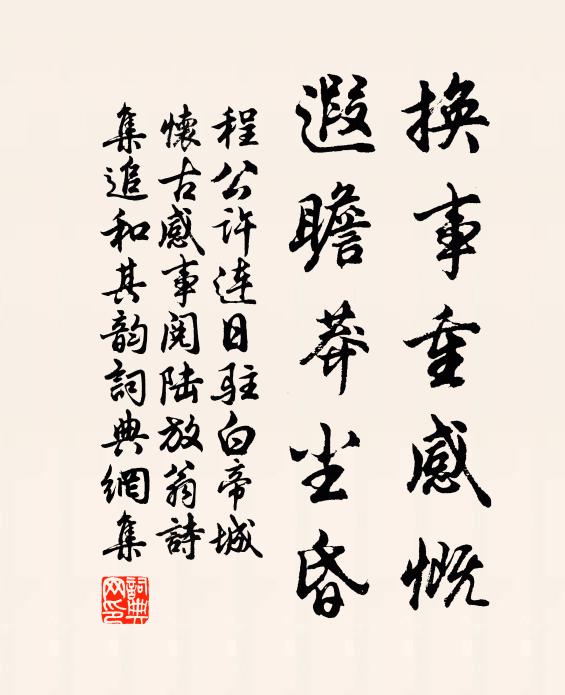 换事重感慨
遐瞻莽尘昏
程公许连日驻白帝城
懷古感事阅陆放翁詩
集追和其韵詞典網集
詞典網印